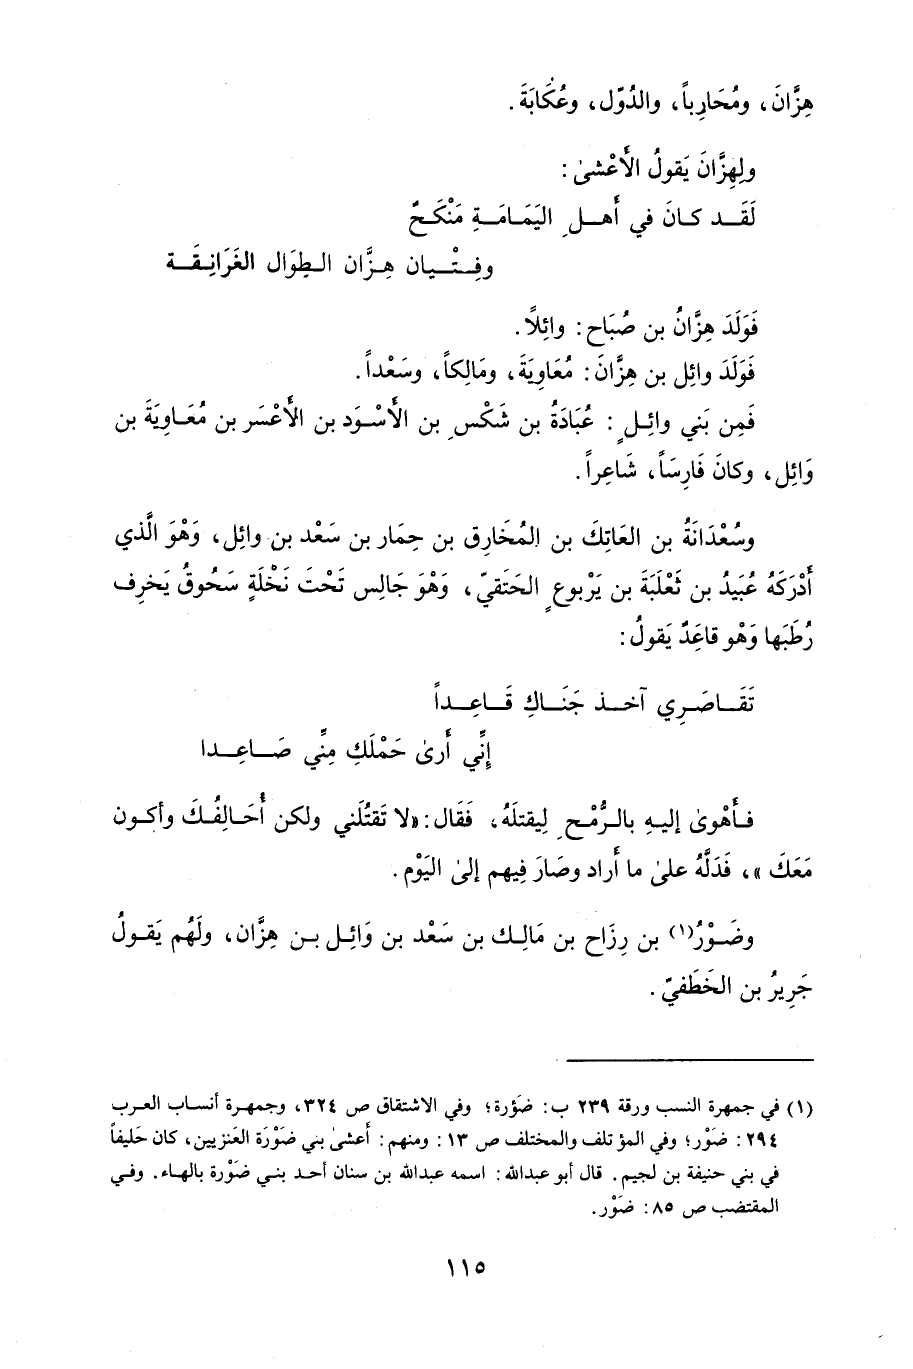 هِزَّانَ، ومُحَارِباً، والدُوّل، وعُكَابَةَ.
ولِهِزَّانَ يَقولُ الأَعْشىٰ:
لَقَـد كـانَ في أَهـلِ اليَمَـامَـةِ مَنْكَـحٌ
وفِـتْـيـان هِـزَّان الـطِوَال الغَرَانِـقَـة
فَوَلَدَ هِزَّانُ بن صُبَاح: وائِلاً.
فَوَلَدَ وائِل بن هِزَّانَ: مُعَاوِيَةَ، ومَالِكاً، وسَعْداً.
فَمِن بَني وائِـلٍ: عُبَادَةُ بن شَكْسِ بن الأَسْـوَد بن الأَعْسَر بن مُعَـاوِيَةَ بن
وَائِل، وكانَ فَارِسَاً، شَاعِراً.
وسُعْدَانَةُ بن العَاتِكَ بن المُخَارِق بن حِمَار بن سَعْد بن وائِل، وَهْوَ الَّذي
أَدْرَكَهُ عُبَيدُ بن ثَعْلَبَةَ بن يَرْبوعٍ الحَتَفيّ، وَهْوَ جَالِس تَحْتَ نَخْلَةٍ سَحُوقُ يَخرِف
رُطَبَها وَهْو قاعَدٌ يَقولُ:
تَقَـاصَـرِي آخـذ جَنَـاكِ قَـاعِـداً
إِنِّي أَرىٰ حَمْلَكِ مِنِّي صَـاعِـدا
فـأَهْوىٰ إليهِ بالـرُّمْـحِ لِيقتلَهُ، فَقَال: «لا تَقتُلَني ولكن أُحَـالِفُـكَ وأكـون
مَعَكَ»، فَدَلَّهُ علىٰ ما أَراد وصَارَ فِيهم إلىٰ اليَوْم.
وضَـوْرُ(١) بن رِزَاح بن مَالِـك بن سَعْد بن وَائِـل بـن هِزَّان، ولَهُم يَقـولُ
جَرِيرُ بن الخَطَفيّ.
(١) في جمهرة النسب ورقة ٢٣٩ ب: ضَوْرة؛ وفي الاشتقاق ص ٣٢٤، وجمهـرة أنسـاب العـرب
٢٩٤: ضَوْر؛ وفي المؤتلف والمختلف ص ١٣: ومنهم: أعشىٰ بني ضَوْرَة العَنزيين، كان حَليفاً
في بني حنيفة بن لجيم. قال أبو عبدالله: اسمه عبدالله بن سنان أحـد بنـي ضَورة بالهـاء. وفـي
المقتضب ص ٨٥: ضَوْر.
١١٥